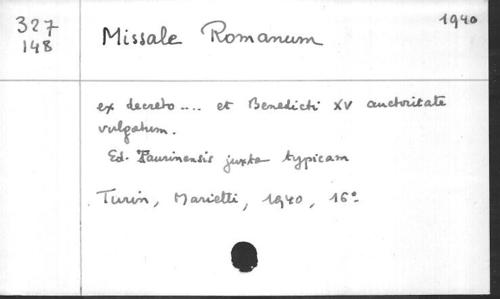 327 Missale Romanum 1940
148
ex decreto .... et Benedicti XV auctoritate
vulgatum.
Ed. Taurinensis juxta typicam
Turin, Marietti, 1940, 16°